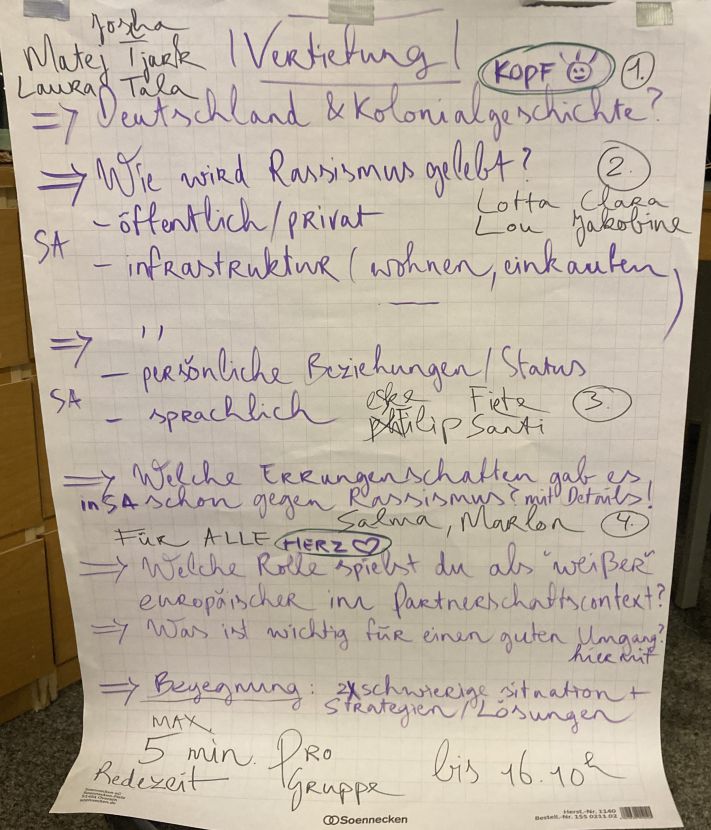 Joska
Matej Tjark
Laura Tala
|Vertiefung|
KOPF
1.
=> Deutschland & Kolonialgeschichte?
=> Wie wird Rassismus gelebt? 2.
Lotta Clara
Lou Jakobine
SA
- öffentlich/privat
- infrastruktur (wohnen, einkaufen
)
=> ''
- persönliche Beziehungen/Status
SA
- sprachlich
eske Fiete 3.
Philip Santi
=> Welche Errungenschaften gab es
in SA schon gegen Rassismus? mit Details!
Salma, Marlon 4.
FÜR ALLE HERZ ♡
=> Welche Rolle spielst du als "weißer"
europäischer im Partnerschaftscontext?
=> Was ist wichtig für einen guten Umgang?
hiermit
=> Begegnung: 2x schwierige situation +
Strategien/Lösungen
MAX.
5 min. PRO
Redezeit GRUPPE
bis 16.10h
Soennecken
Herst.-Nr. 1140
Bestell.-Nr. 155 0211 02